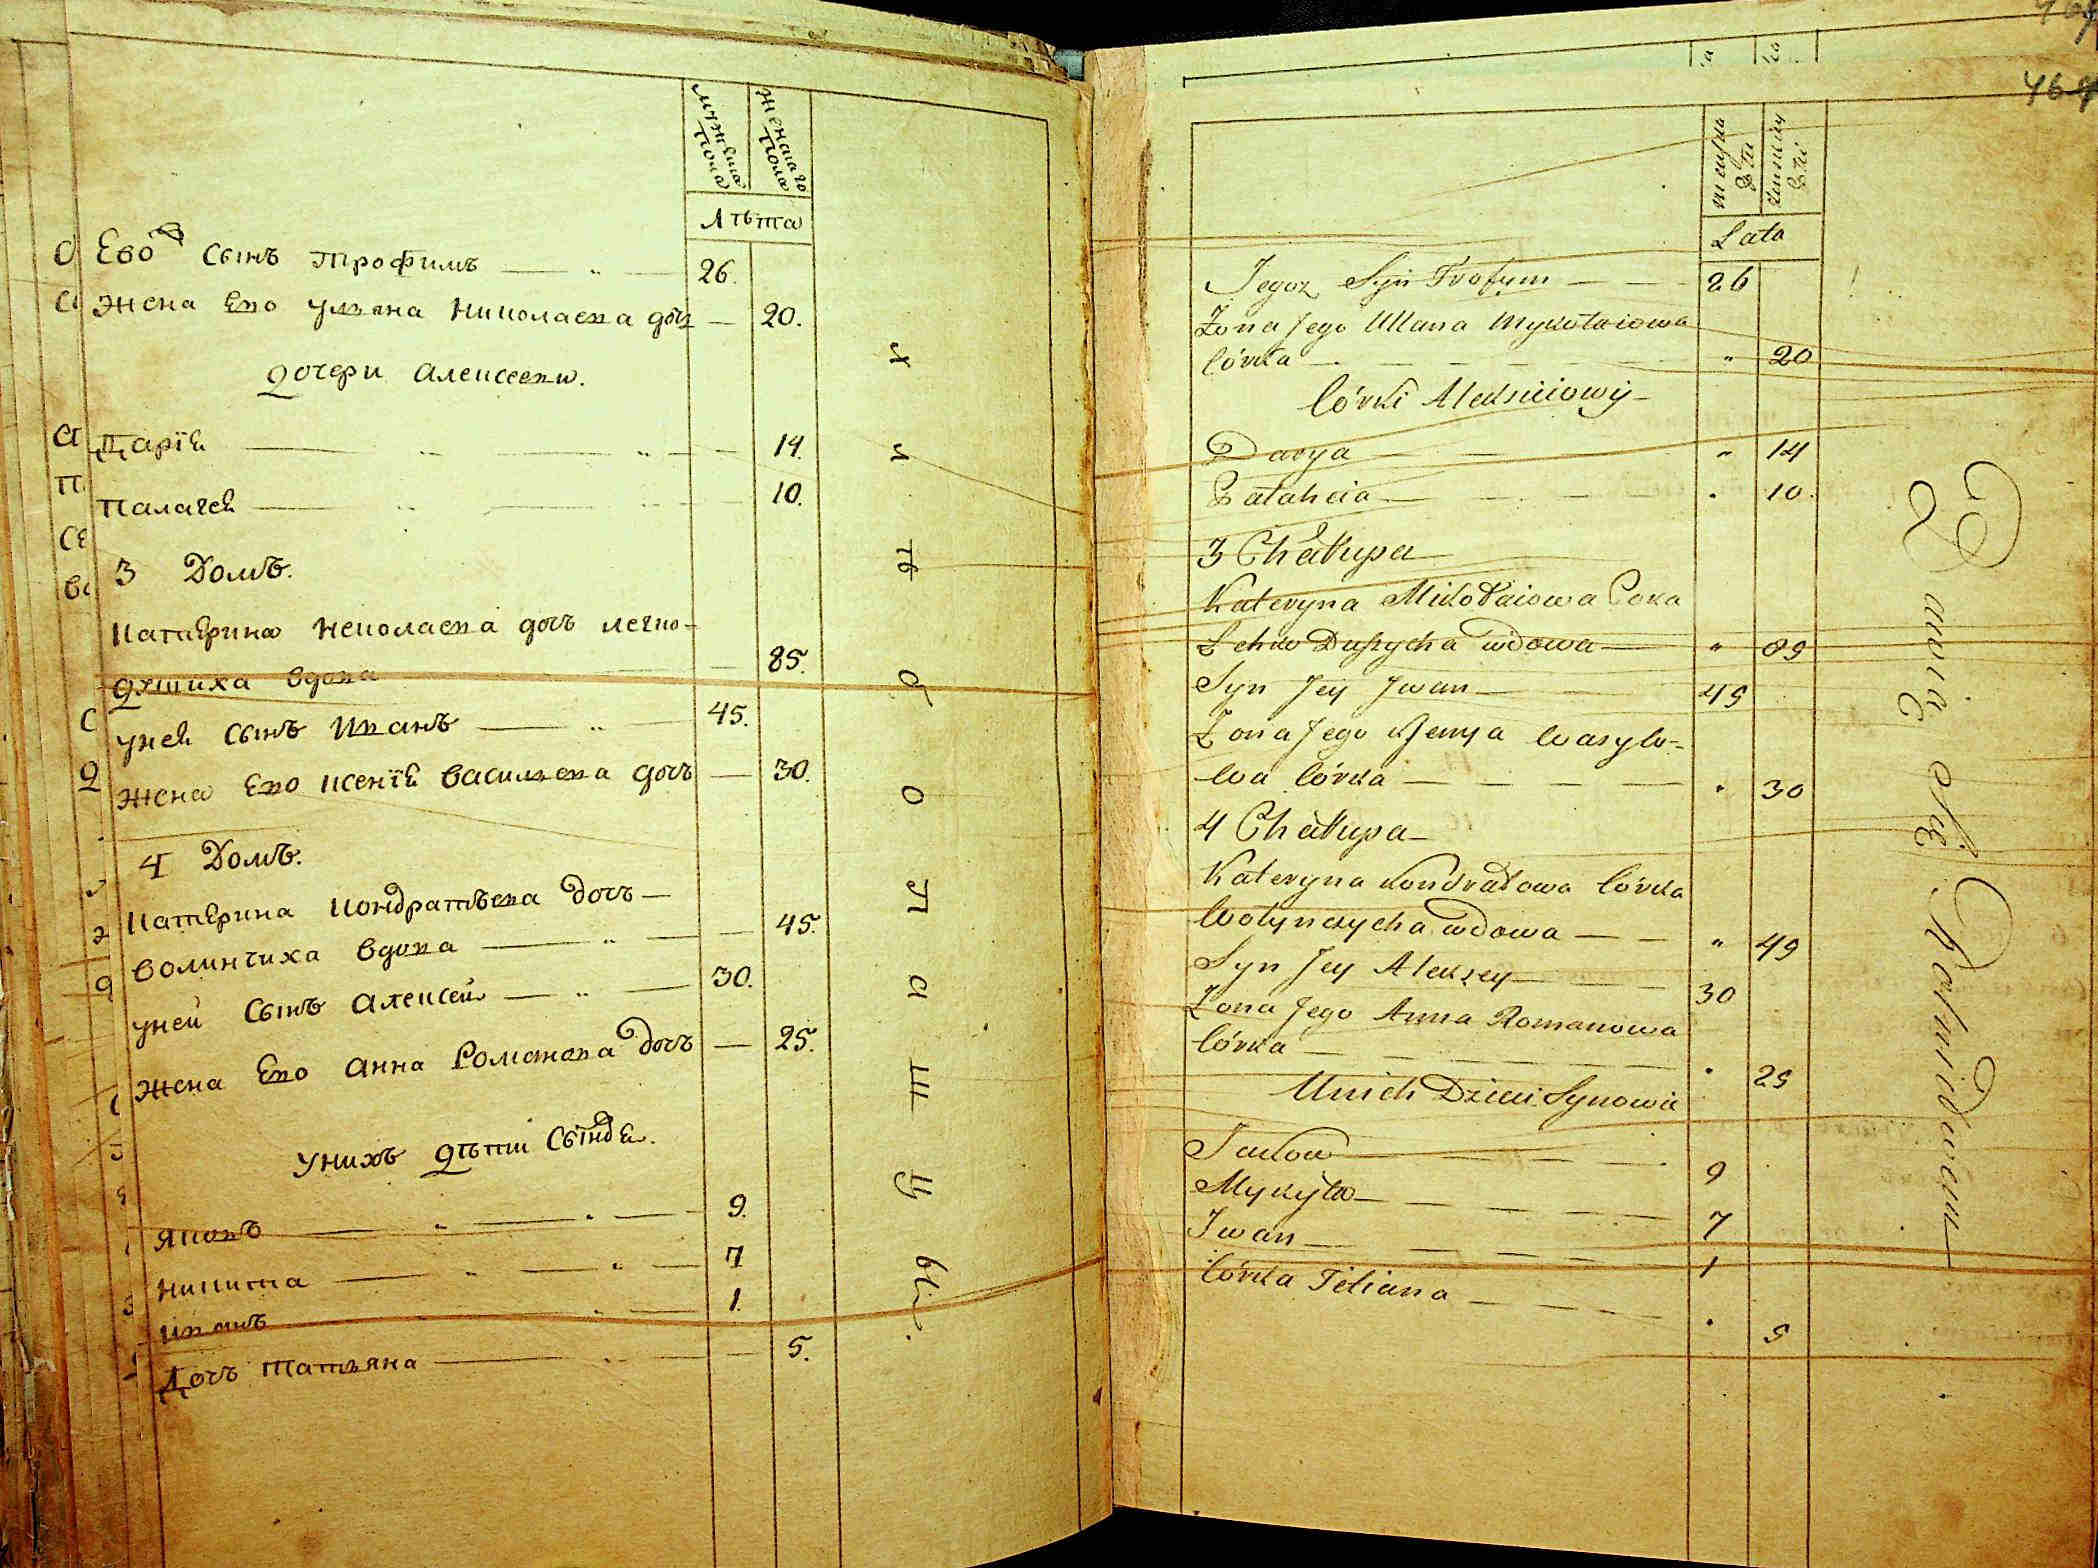 мужеска пола
женскаго пола
Лѣта
Ево сынъ трофимъ — 26.
жена Ево ульяна николаева дочь — 20.
дочери алексееви.
Дарїя — 14.
палагея — 10.
3 Домъ.
катерина неколаева дочь легко-
душиха вдова — 85.
уней сынъ иванъ — 45.
жена Ево ксенїя васильева дочь — 30.
4 Домъ.
катерина кондратьева дочь —
волинчиха вдова — 45.
уней сынъ алексей — 30.
жена Ево анна Романова дочь — 25.
унихъ дѣти сыновя.
яковъ — 9.
никита — 7
иванъ — 1.
Дочь татьяна — 5.
хлѣбопашцы.
469
męska płci
Lata
Jegoz Syn Trofym — 26
Zona Jego Ullana Mykołaiowa
Córka — " 20
Córki Alexsiiowy
Darya — " 14
Pałahcia — " 10.
3 Chałupa
Kateryna Mikołaiowa Cora
Lehko Duszycha wdowa — " 85
Syn Jey Jwan — 45
Zona Jego Xsenya Wasylo-
wa Córka — " 30
4 Chałupa
Kateryna Kondratowa Córka
Wołynczycha wdowa — " 45
Syn Jey Alexsey — 30
Zona Jego Anna Romanowa
Córka — " 25
Unich Dzieci Synowie
Jakow — 9
Mykyta — 7
Jwan — 1
Córka Tetiana — " 5
Bawią się Rolnidwem